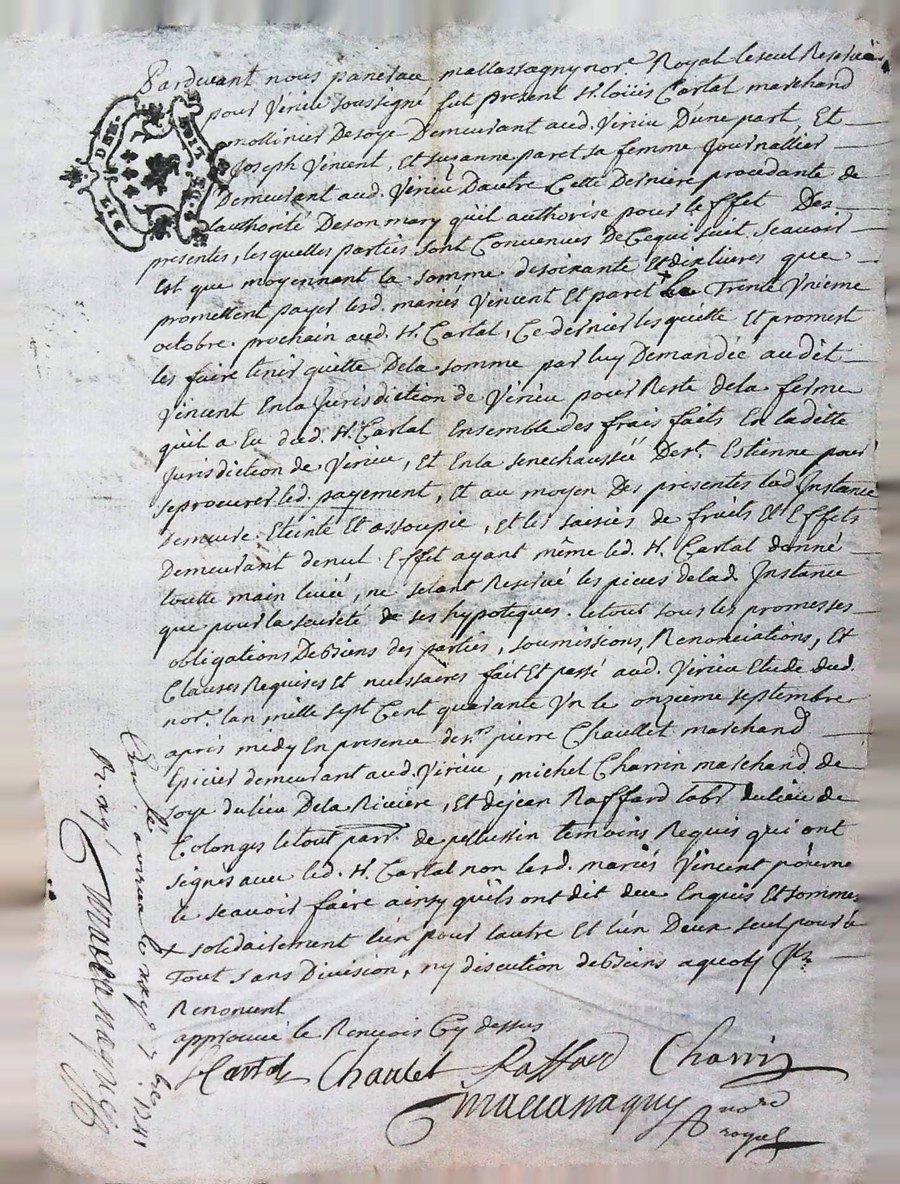 Pardevant nous paneraux mallassagny nore Royal le seul Reservé
pour Virieu soussigné fut present Sr. Loüis Cartal marchand
mollinier de soye Demeurant aud. Virieu D'une part, Et
Joseph Vincent, Et Suzanne paret sa femme Journallier
Demeurant aud. Virieu Dautre Cette Derniere procedante de
lauthorité De son mary qüil authorise pour leffet Des
presentes, lesquelles parties sont Convenues De Cequi suit scavoir
Est que moyennant la somme desoixante Et dix livres que
promettent payer lesd. mariés Vincent Et paret Le Trente Vnieme
octobre prochain aud. Sr. Cartal, Ce dernier les quitte Et promest
les faire tenir quitte Dela somme par luy Demandée audit
Vincent En la Jurisdiction de Virieu pour Reste dela ferme
qüil a Eu dud. Sr. Cartal Ensemble des frais faits En laditte
Jurisdiction de Virieu, Et En la senechaussée De st. Estienne pour
se procurer led. payement, Et au moyen Des presentes lad. Instance
Demeure Eteinte Et assoupie, Et les saisies de fruits Et Effets
Demeurant de nul Effet ayant même led. Sr. Cartal donné
toutte main levée, ne setant Reservé les pieces de lad. Instance
que pour la seureté de ses hypoteques. le tout sous les promesses
obligations De Biens des parties, soumissions, Renonciations, Et
Clauses Requises Et necessaires fait Et passé aud. Virieu Etude dud.
nore. lan mille sept Cent quarante Vn le onzieme septembre
aprés midy En presence de sr. pierre Chaullet marchand
Epicier demeurant aud. Virieu, michel Charrin marchand de
soye du lieu De la Riviere, Et de jean Raffard labr. du lieu de
Colonges le tout parr. de pelussin temoins Requis qui ont
signés avec led. Sr. Cartal non lesd. mariés Vincent pour ne
le scavoir faire ainsy qüils ont dit de ce Enquis Et sommés
+ solidairement lün pour lautre Et lün Deux seul pour le
Tout sans Division, ny discution de Biens aquoy Ils
Renoncent
approuvé le Renvois Cy dessus
Cartal Chaulet Raffard Charrin
nore
royal